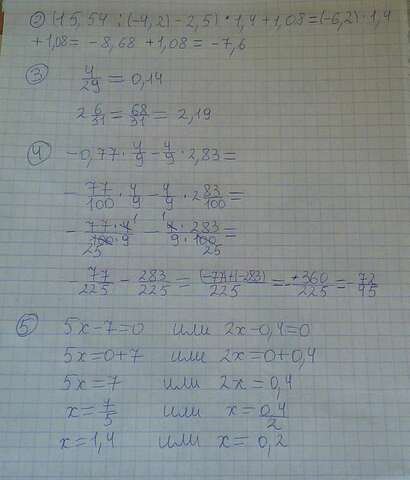 ② (15,54 : (-4,2) - 2,5) · 1,4 + 1,08 = (-6,2) · 1,4
+ 1,08 = -8,68 + 1,08 = -7,6
③ 4/29 = 0,14
2 6/31 = 68/31 = 2,19
④ -0,77 · 4/9 - 4/9 · 2,83 =
- 77/100 · 4/9 - 4/9 · 2 83/100 =
- 77 · 4 1/100 · 9 25 - 1 4 · 283/9 · 100 25 =
- 77/225 - 283/225 = (-77)+(-283)/225 = - +360/225 = - 72/45
⑤ 5x-7=0 или 2x-0,4=0
5x=0+7 или 2x=0+0,4
5x=7 или 2x=0,4
x=7/5 или x=0,4/2
x=1,4 или x= 0,2